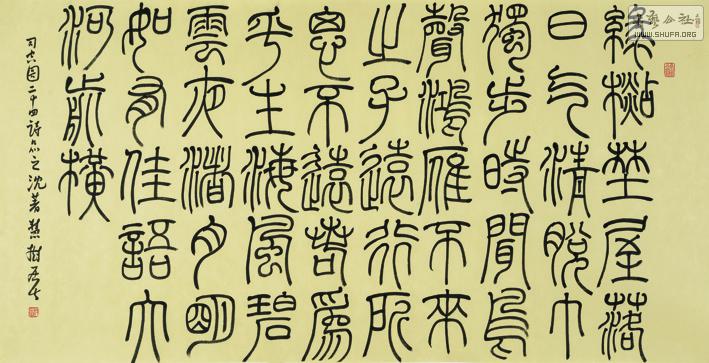 綠檆埜屋落
日气清脫巾
獨步時聞鳥
聲鴻雁不來
之子遠行所
思不遠若爲
平生海風碧
雲夜渚月明
如有佳語大
河前橫
司空圖二十四詩品之沈著
書藝公社
WWW.SHUFA.ORG